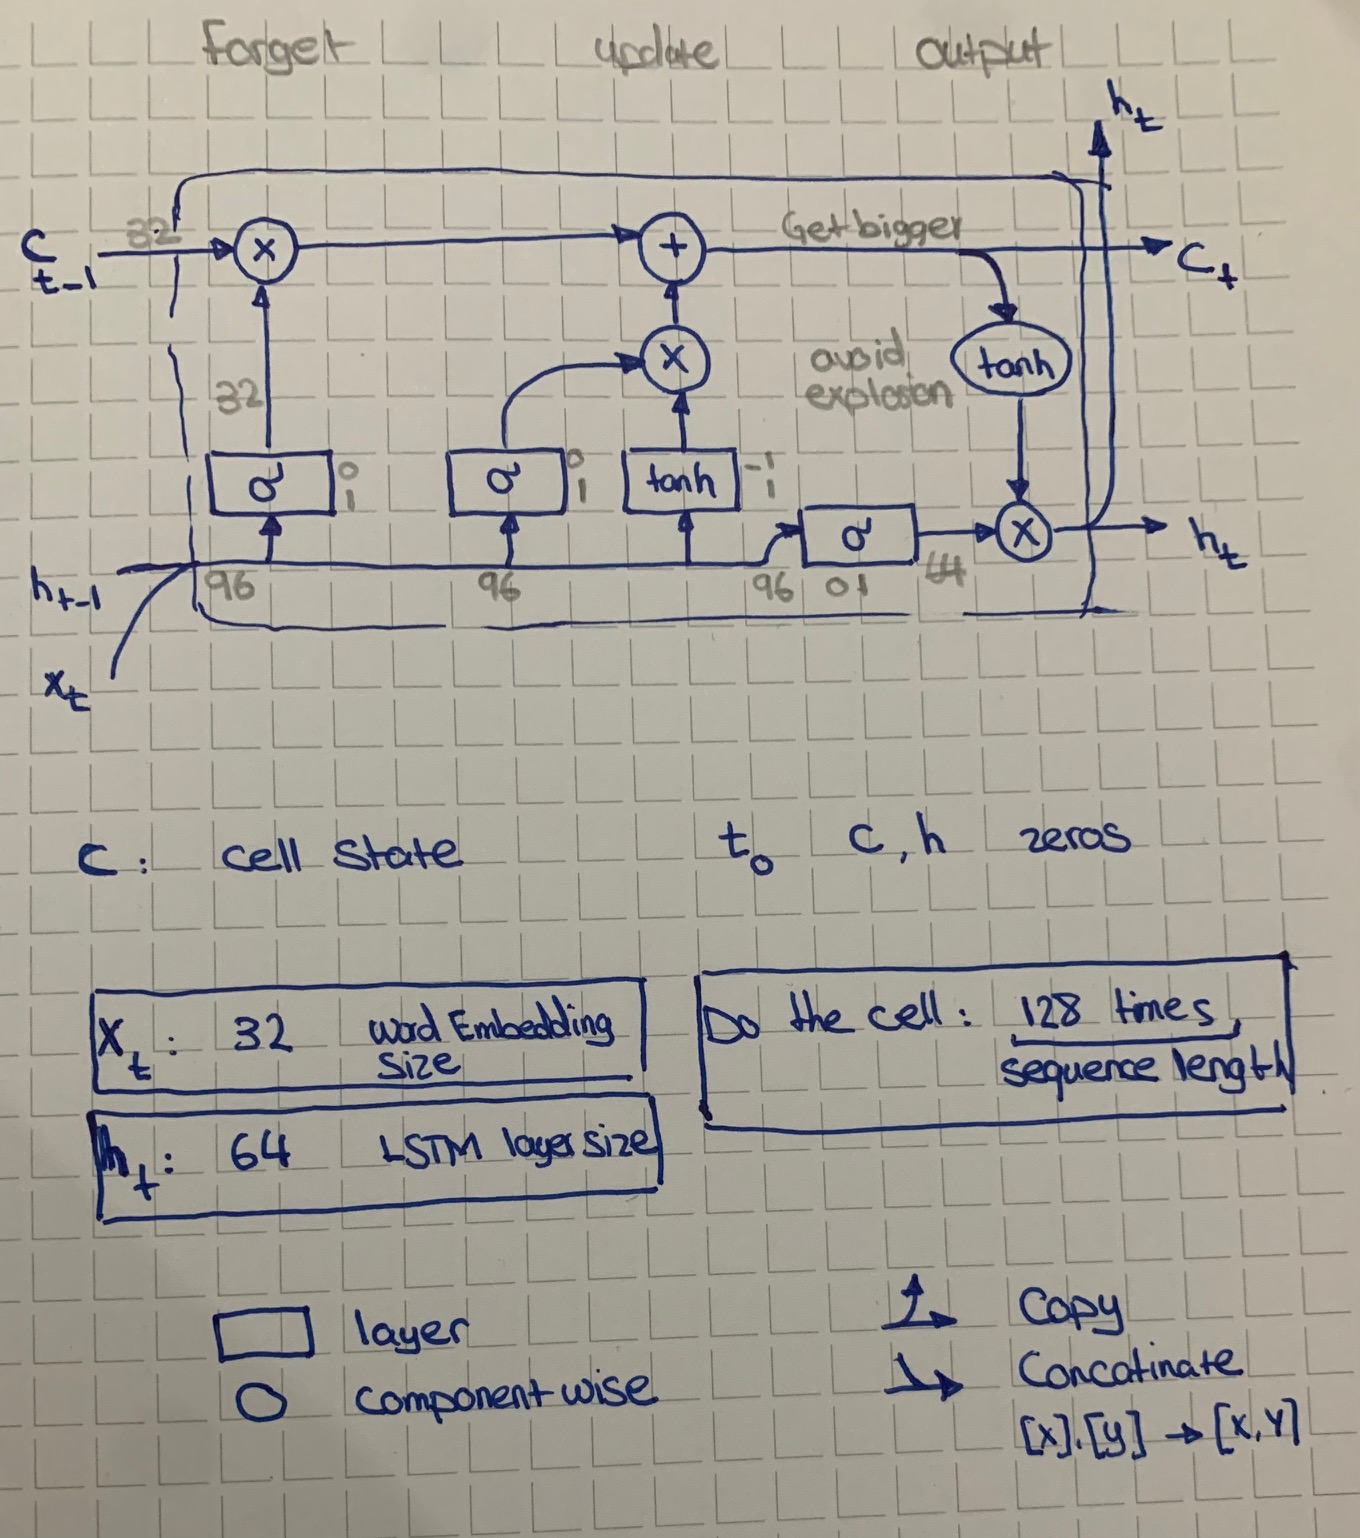 Forget update output
h_t
C_t-1 32 × + Get bigger C_t
32 × avoid explosion tanh
σ 0 1 σ 0 1 tanh -1 1
h_t-1 96 96 96 σ 0 1 × h_t
x_t
C: cell State t_0 C, h zeros
X_t: 32 Word Embedding
size
h_t: 64 LSTM layer size
Do the cell: 128 times,
sequence length
layer
component wise
Copy
Concatinate
[x].[y] → [X,Y]